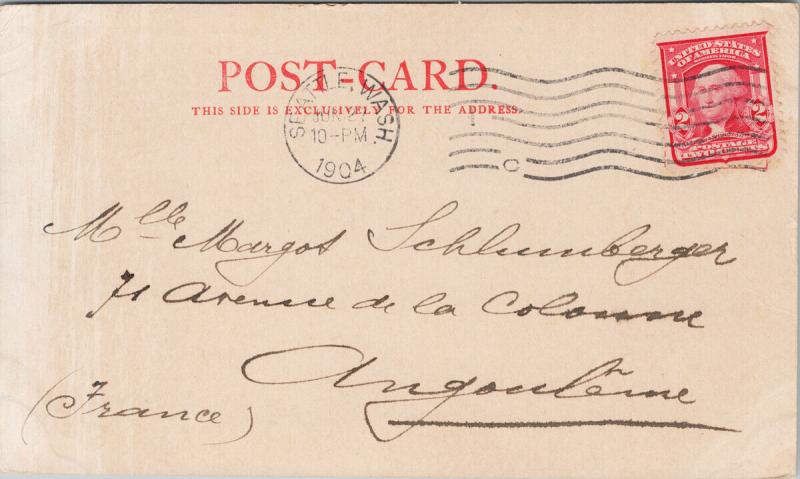 UNITED STATES
OF AMERICA
POST-CARD.
THIS SIDE IS EXCLUSIVELY FOR THE ADDRESS.
SEATTLE, WASH.
JUN 2
10-PM
1904
2 2
POSTAGE
TWO CENTS
C
Mlle Margot Schlumberger
71 Avenue de la Colonne
Angoulême
(France)